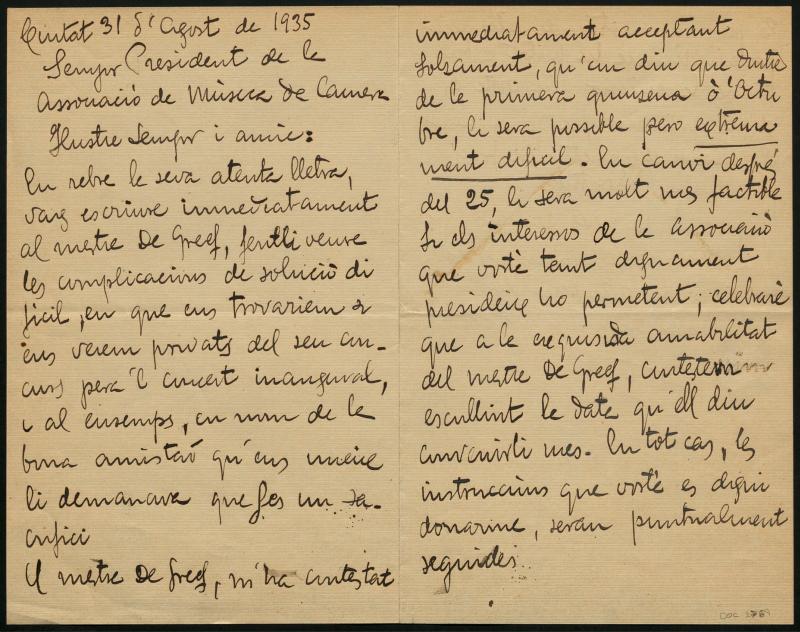 Ciutat 31 d'Agost de 1935
Senyor President de la
Associació de Música de Camera
Ilustre Senyor i amic:
En rebre la seva atenta lletra,
varg escriure immediatament
al mestre De Greef, fentli veure
les complicacions de solució di
ficil, en que ens trovariem si
ens veiem privats del seu con-
curs pera 'l concert inaugural,
i al ensemps, en nom de la
bona amistat qu'ens uneix
li demanava que fes un sa-
crifici
El mestre De Greef, m'ha contestat
immediatament acceptant
Solsament, qu'em diu que dintre
de la primera quinsena d'Octu
bre, li sera possible pero extrema
ment dificil. En canvi després
del 25, li sera molt mes factible
Si els interessos de la associació
que vosté tant dignament
presideix ho permetent; celebraré
que a la exquisida amabilitat
del mestre De Greef, contestem
escullint la date qu'ell diu
convenirli mes. En tot cas, les
instruccions que vosté es digni
donarme, seran puntualment
seguides
DOC